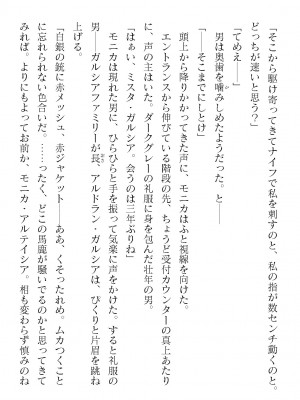 「そこから駆け寄ってきてナイフで私を刺すのと、私の指が数センチ動くのと、
どっちが速いと思う？」
「てめえ――」
　男は奥歯を噛みしめたようだった。と――
「――そこまでにしとけ」
　頭上から降りかかってきた声に、モニカはふと視線を向けた。
　エントランスから伸びている階段の先、ちょうど受付カウンターの真上あたり
に、声の主はいた。ダークグレーの礼服に身を包んだ壮年の男。
「はぁい、ミスタ・ガルシア。会うのは三年ぶりね」
　モニカは現れた男に、ひらひらと手を振って気楽に声をかけた。すると礼服の
男――ガルシアファミリーが長、アルドラン・ガルシアは、ぴくりと片眉を跳ね
上げる。
「白銀の銃に赤メッシュ、赤ジャケット――ああ、くそったれめ。ムカつくこと
に忘れられない色合いだ。……ったく、どこの馬鹿が騒いでるのかと思ってきて
みれば。よりにもよってお前か、モニカ・アルテイシア。相も変わらず慎みのね